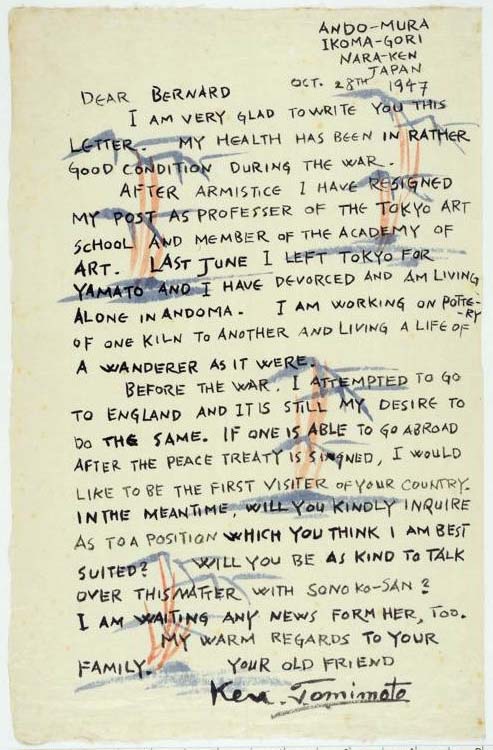 ANDO-MURA
IKOMA-GORI
NARA-KEN
JAPAN
OCT. 28TH 1947
DEAR BERNARD
I AM VERY GLAD TO WRITE YOU THIS
LETTER. MY HEALTH HAS BEEN IN RATHER
GOOD CONDITION DURING THE WAR.
AFTER ARMISTICE I HAVE RESIGNED
MY POST AS PROFESSER OF THE TOKYO ART
SCHOOL AND MEMBER OF THE ACADEMY OF
ART. LAST JUNE I LEFT TOKYO FOR
YAMATO AND I HAVE DEVORCED AND AM LIVING
ALONE IN ANDOMA. I AM WORKING ON POTTE-
RY
OF ONE KILN TO ANOTHER AND LIVING A LIFE OF
A WANDERER AS IT WERE.
BEFORE THE WAR, I ATTEMPTED TO GO
TO ENGLAND AND IT IS STILL MY DESIRE TO
DO THE SAME. IF ONE IS ABLE TO GO ABROAD
AFTER THE PEACE TREATY IS SINGNED, I WOULD
LIKE TO BE THE FIRST VISITER OF YOUR COUNTRY.
IN THE MEANTIME, WILL YOU KINDLY INQUIRE
AS TO A POSITION WHICH YOU THINK I AM BEST
SUITED? WILL YOU BE AS KIND TO TALK
OVER THIS MATTER WITH SONOKO-SAN?
I AM WAITING ANY NEWS FORM HER, TOO.
MY WARM REGARDS TO YOUR
FAMILY. YOUR OLD FRIEND
Ken. Tomimoto